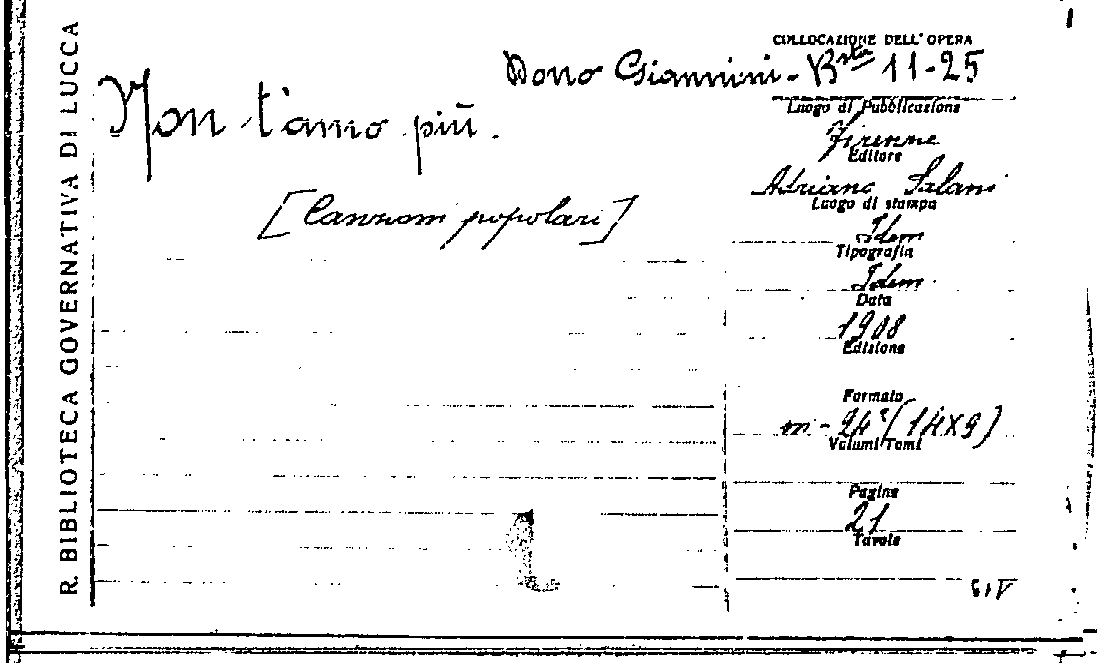 R. BIBLIOTECA GOVERNATIVA DI LUCCA
COLLOCAZIONE DELL'OPERA
Dono Giannini - Bsta 11-25
Non t'amo più.
[Canzoni popolari]
Luogo di Pubblicazione
Firenze
Editore
Adriano Salani
Luogo di stampa
Idem
Tipografia
Idem
Data
1908
Edizione
Formato
in-24° (14x9)
Volumi/Tomi
Pagine
21
Tavole